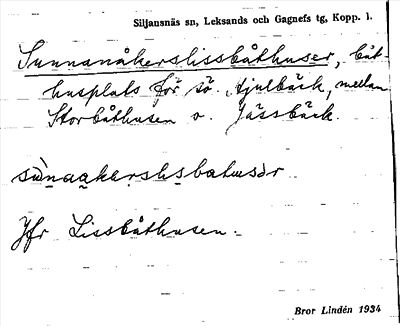 Siljansnäs sn, Leksands och Gagnefs tg, Kopp. l.
Sunnanåkerslissbåthuser, båt-
husplats för sö. Hjulbäck, mellan
Storbåthusen o. Jässbäck.
Jfr Lissbåthusen.
Bror Lindén 1934